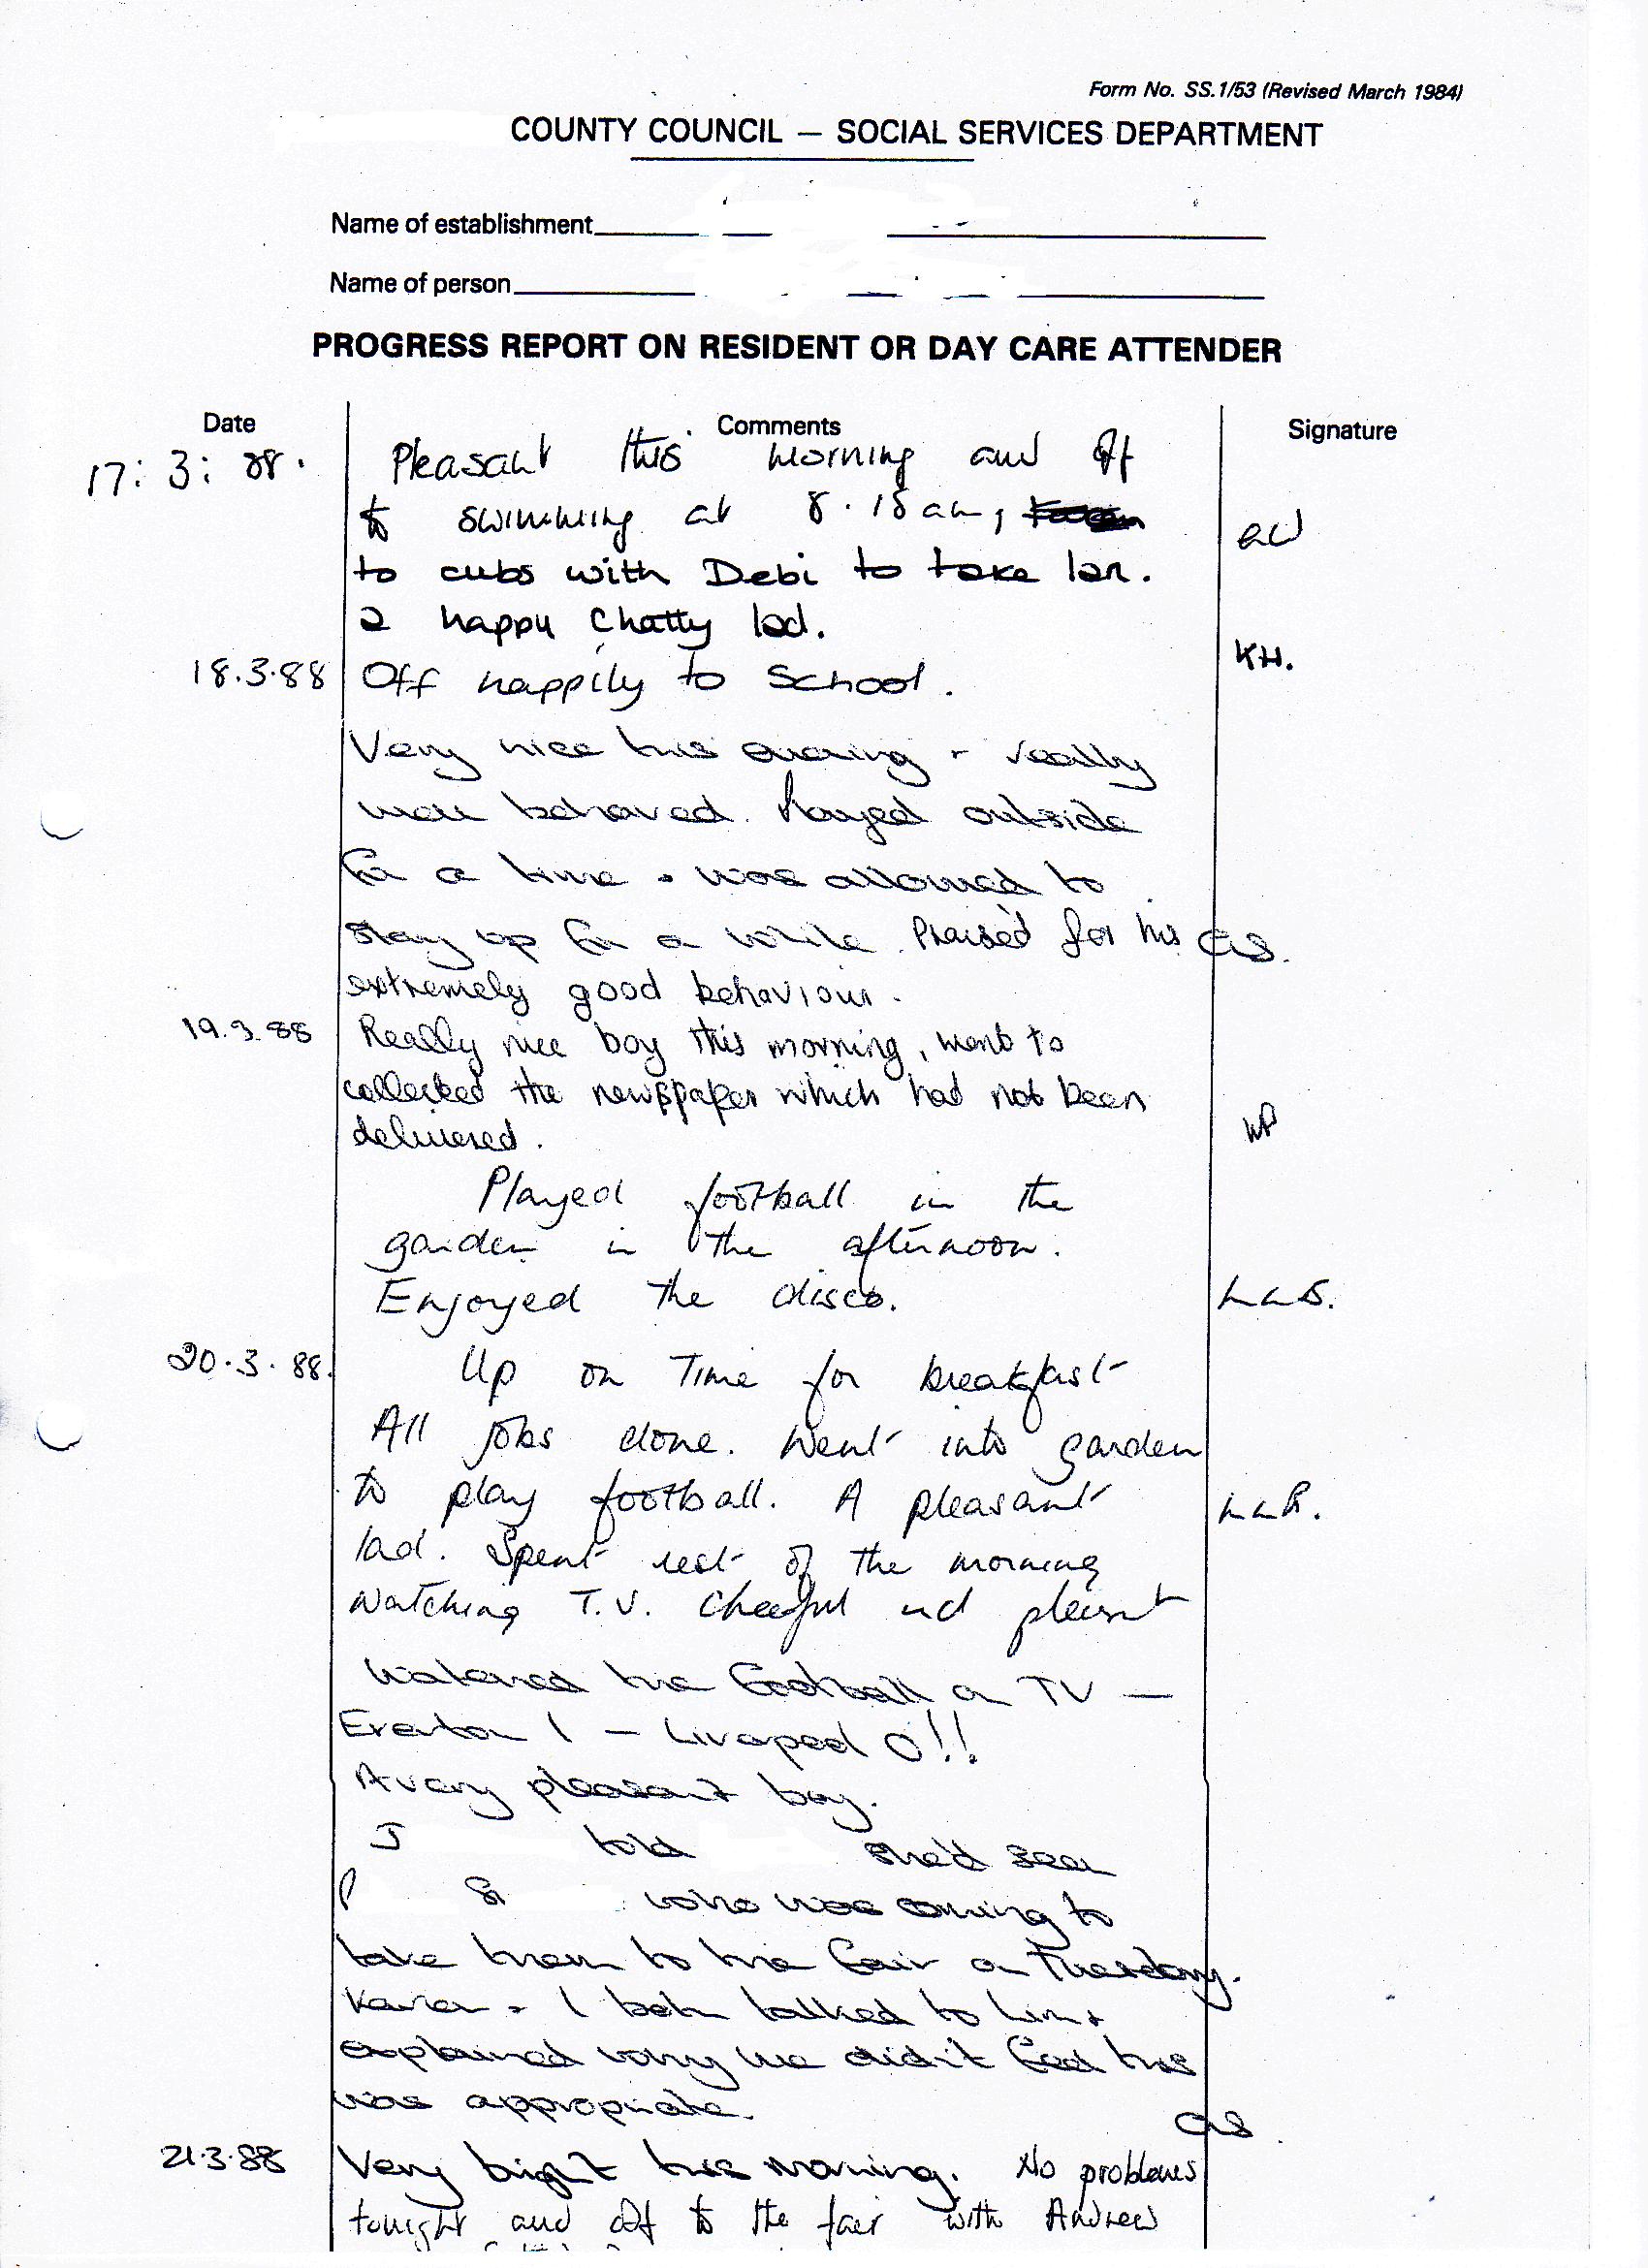 Form No. SS.1/53 (Revised March 1984)
COUNTY COUNCIL — SOCIAL SERVICES DEPARTMENT
Name of establishment
Name of person
PROGRESS REPORT ON RESIDENT OR DAY CARE ATTENDER
Date Comments Signature
17:3:88. Pleasant this morning and off
to swimming at 8.15am,
to cubs with Debi to take Ian.
a happy chatty lad. KH.
18.3.88 Off happily to School.
Very nice this evening - really
well behaved. Played outside
for a time & was allowed to
stay up for a while. Praised for his
extremely good behaviour.
19.3.88 Really nice boy this morning, went to
collected the newspaper which had not been
delivered.
Played football in the
garden in the afternoon.
Enjoyed the disco.
20.3.88. Up on Time for breakfast
All jobs done. Went into garden
to play football. A pleasant
lad. Spent rest of the morning
Watching T.V. Cheerful and pleasant
Watched the football on TV —
Everton 1 — Liverpool 0!!
A very pleasant boy.
J told she'd seen
P who was coming to
take them to the fair on Tuesday.
& I both talked to him &
explained why we didn't feel this
was appropriate.
21.3.88 Very bright this morning. No problems
tonight and off to the fair with Andrew